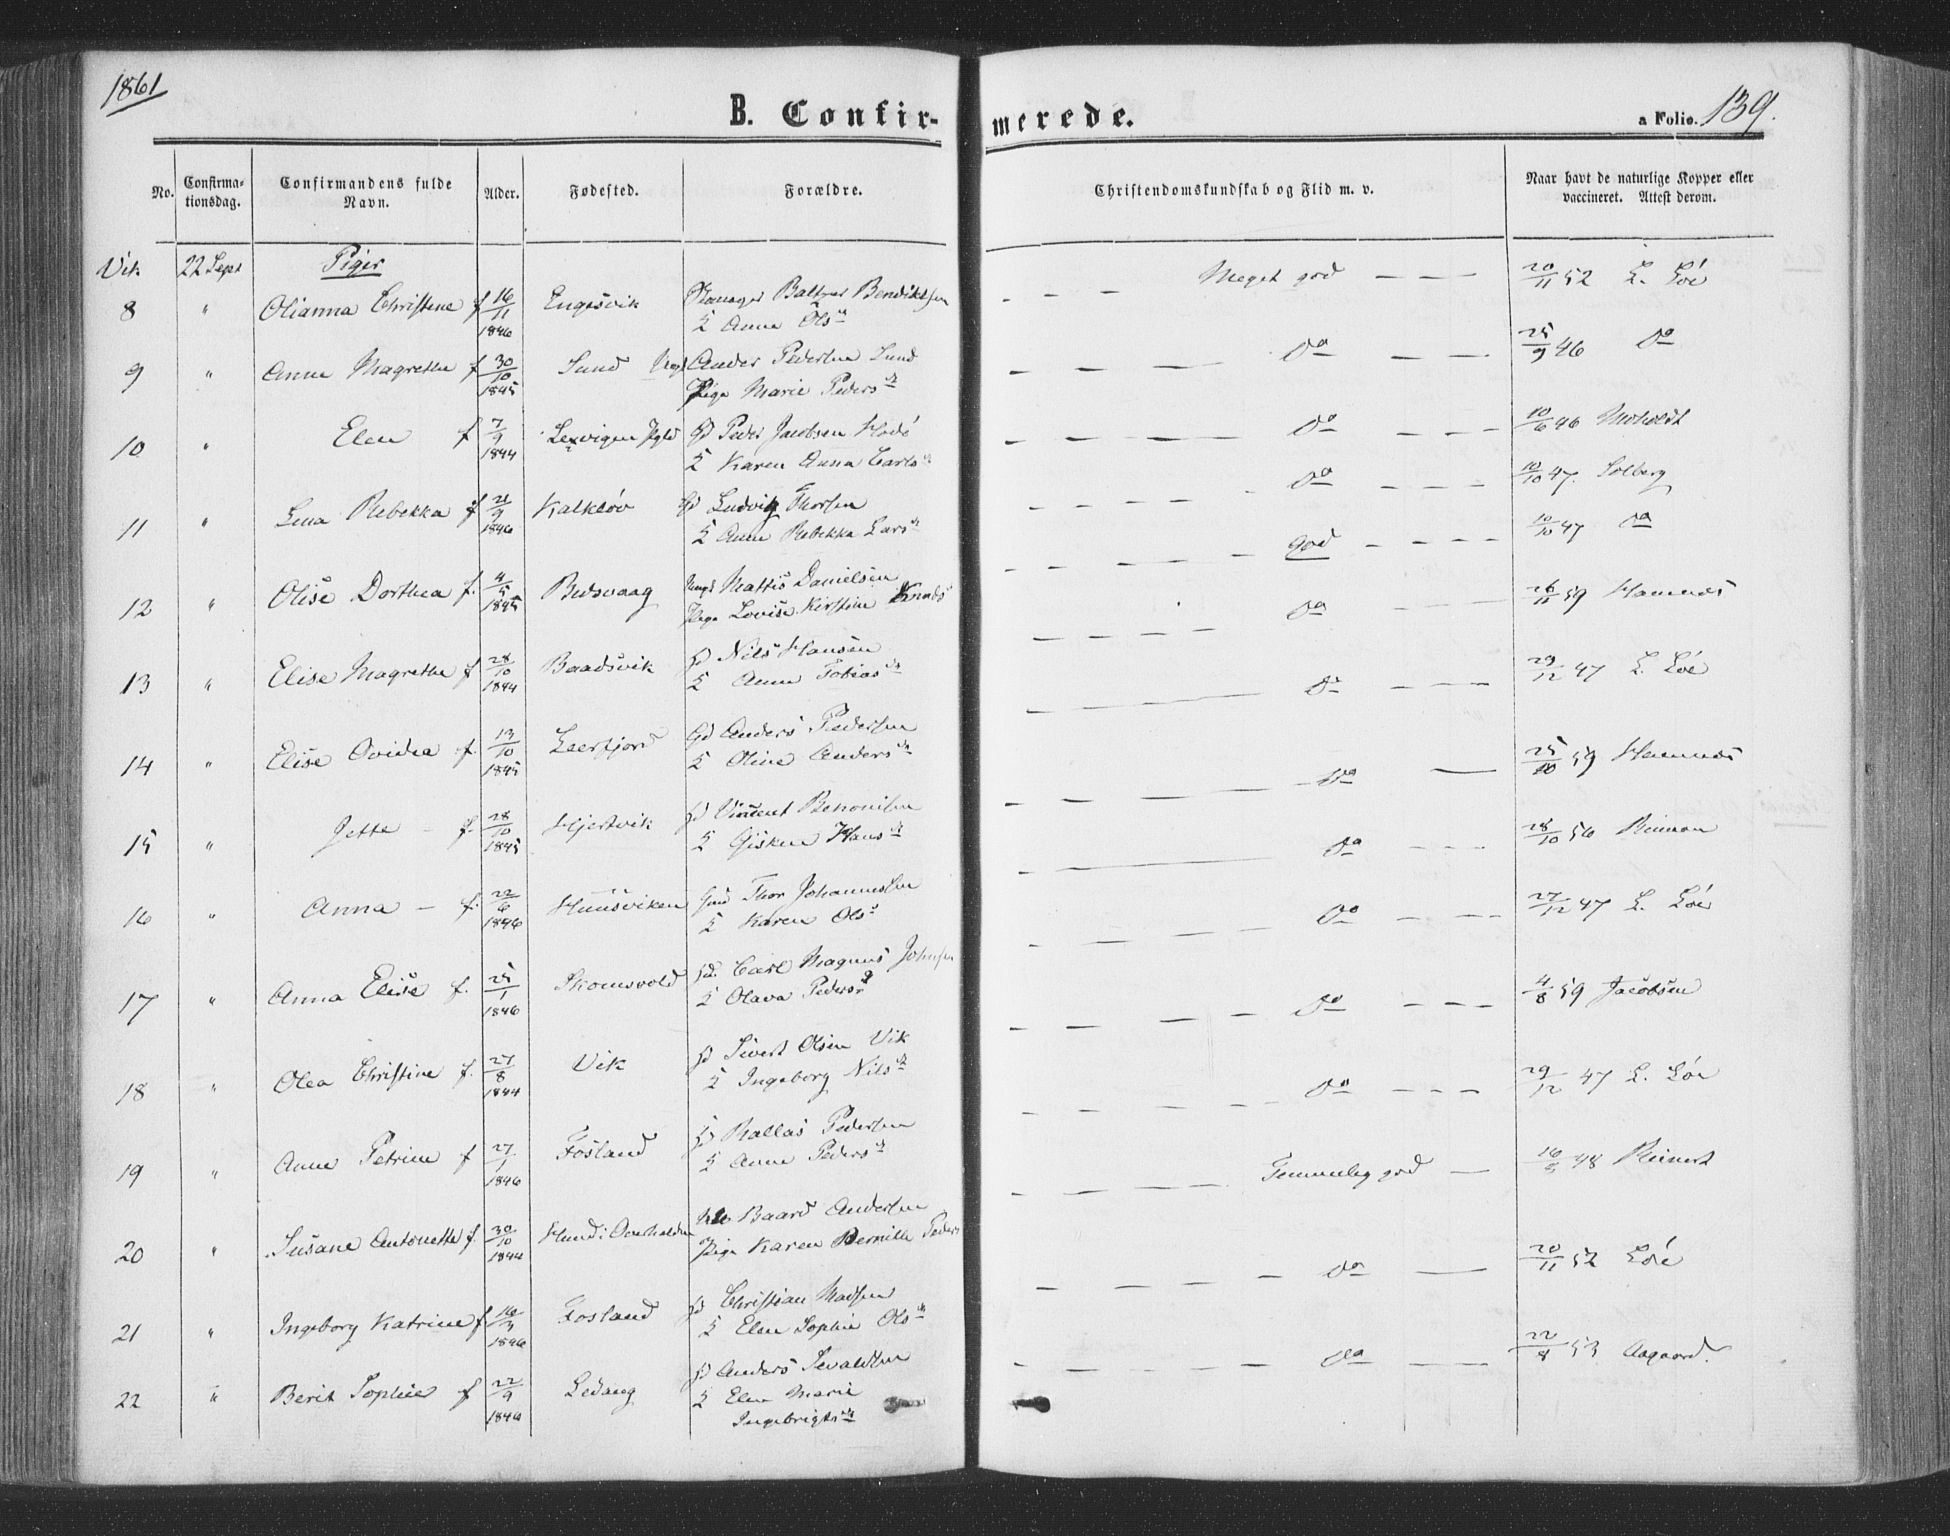 1861
B. Confir-
merede.
a Folio. 139.
No.
Confirma-
tionsdag.
Confirmandens fulde
Navn.
Alder.
Fødested.
Forældre.
Christendomskundskab og Flid m. v.
Naar havt de naturlige Kopper eller
vaccineret. Attest derom.
Vik 22 Sept Piger
8 " Olianna Christine f 16/11 1846 Engesvik Baltzer Bendiktsen
Anna Ols
Meget god 20/11 52 L. Löe
9 " Anne Magrethe f 30/10 1845 Sund Ungk Ander Pedersen Sund
Pige Marie Peders
Do 25/9 46 Do
10 " Elen f 7/9 1844 Gd Peder Jacobsen
K Karen Anna Carls
Do 10/6 46 Moholdt
11 " Lena Rebekka f 21/9 1846 Kalkløv Gd Ludvig Thorsen
K Anne Rebekka Lars
Do 10/10 47. Solberg
god 10/10 47 Do
12 " Olise Dorthea f. 4/5 1845 Budsvaag Ungk Mattis Danielsen
Pige Lovise Kirstine Knuds
Do 26/11 59 Hamnes
13 " Elise Magrethe f 28/10 1844 Baadsvik Nils Hansen
K Anne Tobias
Do 29/12 47 L. Löe
14 " Elise Ovidia f. 13/10 1845 Leerfjord Gd Anders Pedersen
K Oline Anders
Do 25/10 59 Hamnes
15 " Jette - f. 28/10 1845 Hjertvik Vincent Benonisen
K Gisken Hans
Do 28/10 56 Reinan
16 " Anna - f. 22/6 1846 Huusviken Thor Johannessen
K Karen Ols
Do 27/12 47 L. Löe
17 " Anna Elise f. 25/1 1846 Skomsvold Carl Magnus Johnsen
K Olava Peders
Do 4/8 59 Jacobsen
18 " Olea Christine f. 27/8 1844 Vik Sivert Olsen Vik
K Ingeborg Nils
Do 29/12 47 L. Löe
19 " Anne Petrine f 27/1 1846 Fosland Rallas Pedersen
K Anne Peders
Temmelig god 16/5 48 Reinert
20 " Susane Antonette f. 30/10 1844 Hund i Overhalden Baard Andersen
Pige Karen Bernille Peders
Do 20/11 52 Löe
21 " Ingeborg Katrine f 1846 Fosland Christian Madsen
K Elen Sophie Ols
Do 22/8 53 Aagaard.
22 " Berit Sophie f 22/9 1846 Ledang Anders Sevaldsen
K Elen Marie
Ingebrigts